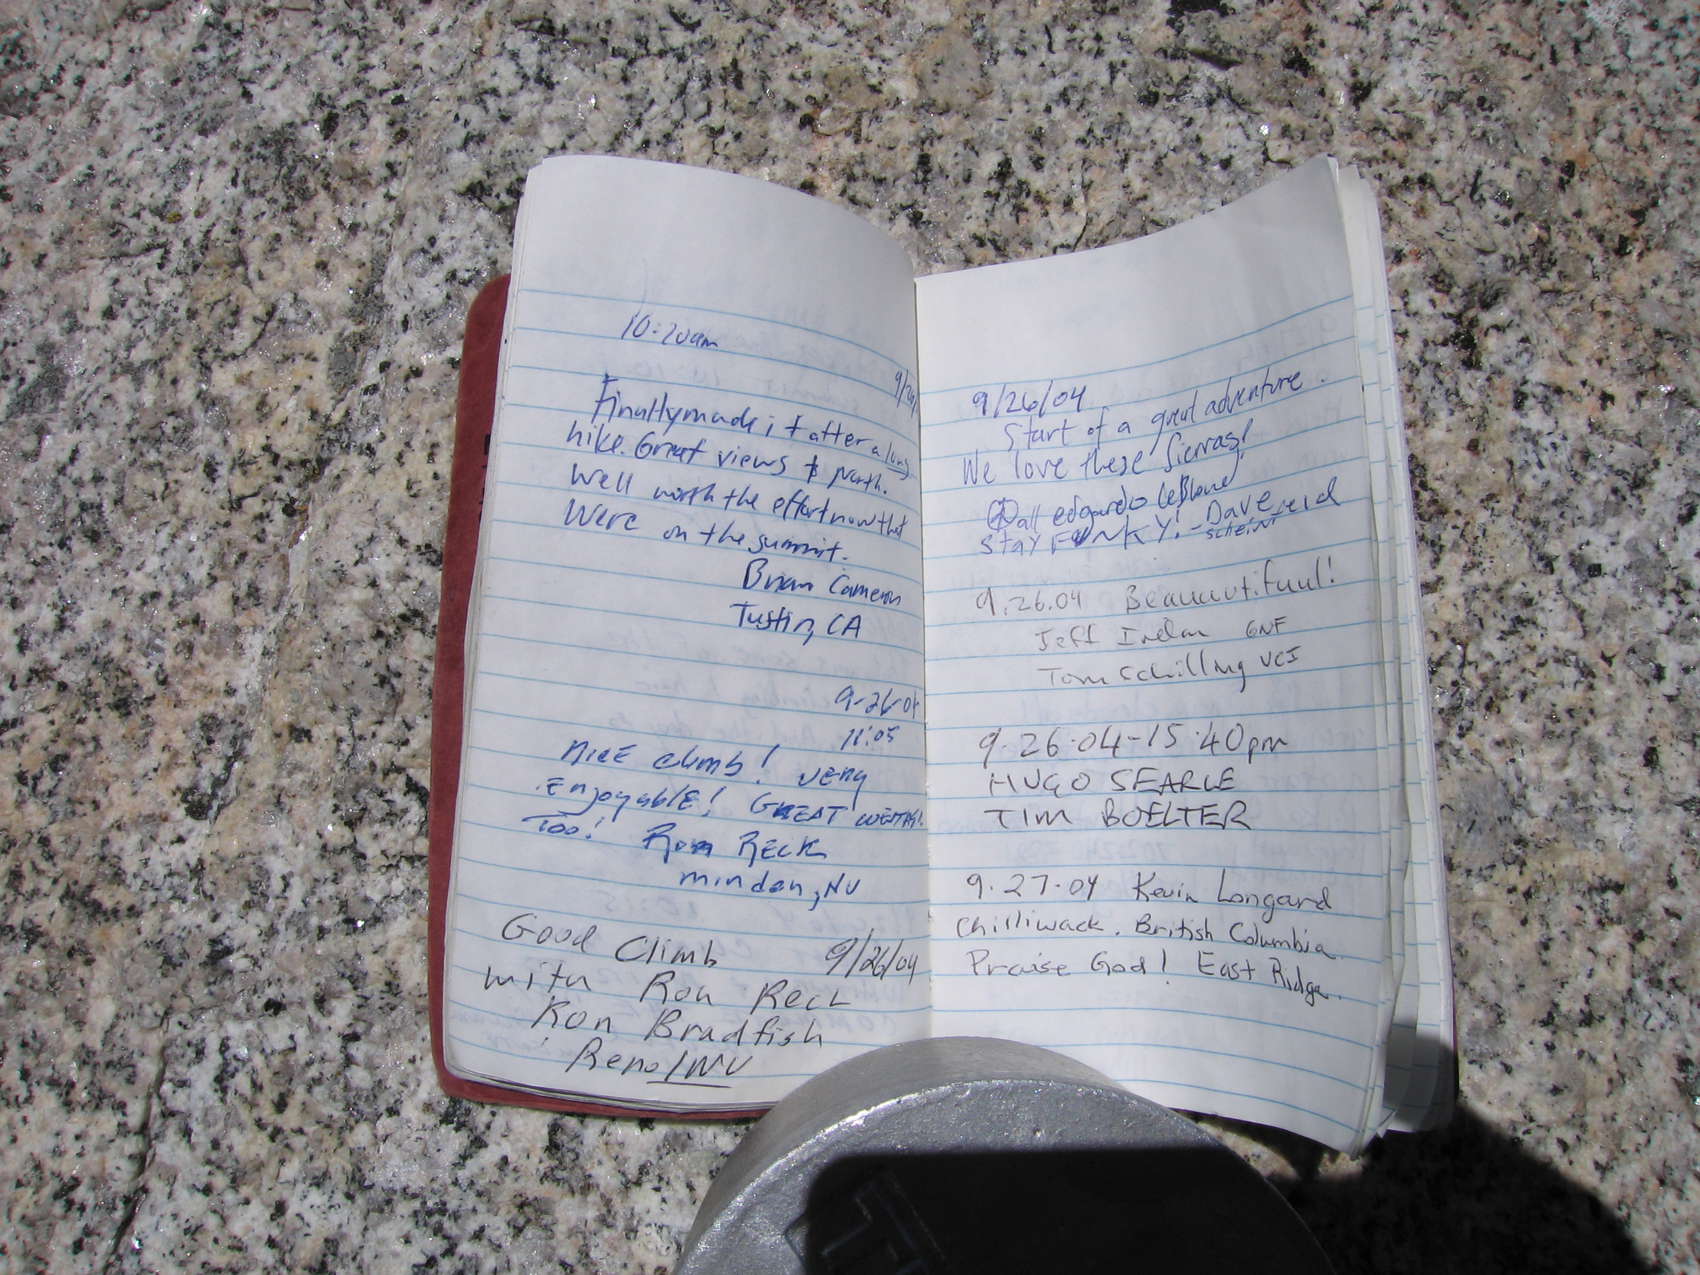 10:20am
9/26/
Finally made it after a long
hike. Great views to north.
Well worth the effort now that
were on the summit.
Brian Cameron
Tustin, CA
9-26-04
11:05
NICE climb! very
Enjoyable! GREAT
Too! Ron RECK
minden, NV
Good Climb 9/26/04
with Ron Reck
Ron Bradfish
Reno/NV
9/26/04
Start of a great adventure.
We love these Sierras!
edgardo LeBlond
Stay FUNKY! - Dave
9.26.04 Beauuutifuul!
Jeff GNF
Tom Schilling VCI
9.26.04-15.40pm
HUGO SEARLE
TIM BOELTER
9.27.04 Kevin Longard
Chilliwack, British Columbia.
Praise God! East Ridge.